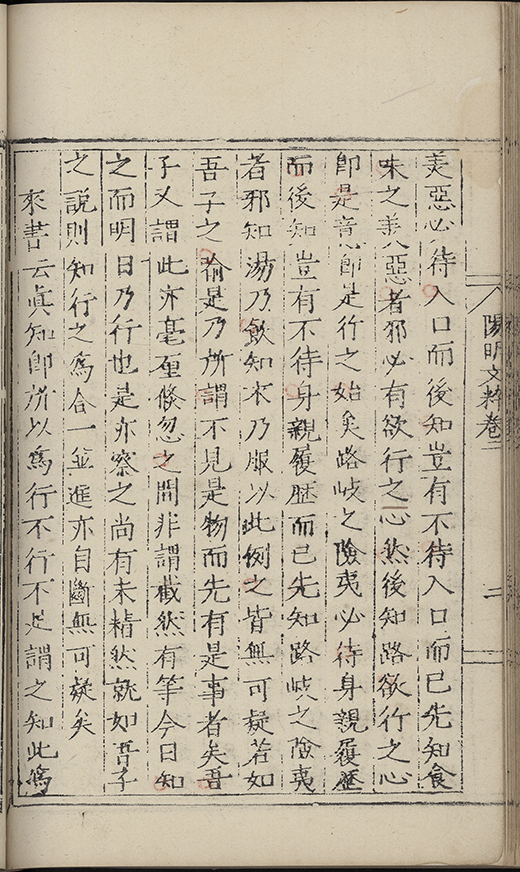 陽明文粹卷二
二
美惡必待入口而後知豈有不待入口而已先知食
味之美惡者邪必有欲行之心然後知路欲行之心
卽是意卽是行之始矣路岐之險夷必待身親履歷
而後知豈有不待身親履歷而已先知路岐之險夷
者邪知湯乃飮知衣乃服以此例之皆無可疑若如
吾子之喻是乃所謂不見是物而先有是事者矣吾
子又謂此亦毫厘倐忽之間非謂截然有等今日知
之而明日乃行也是亦察之尚有未精然就如吾子
之說則知行之爲合一並進亦自斷無可疑矣
來書云眞知卽所以爲行不行不足謂之知此爲